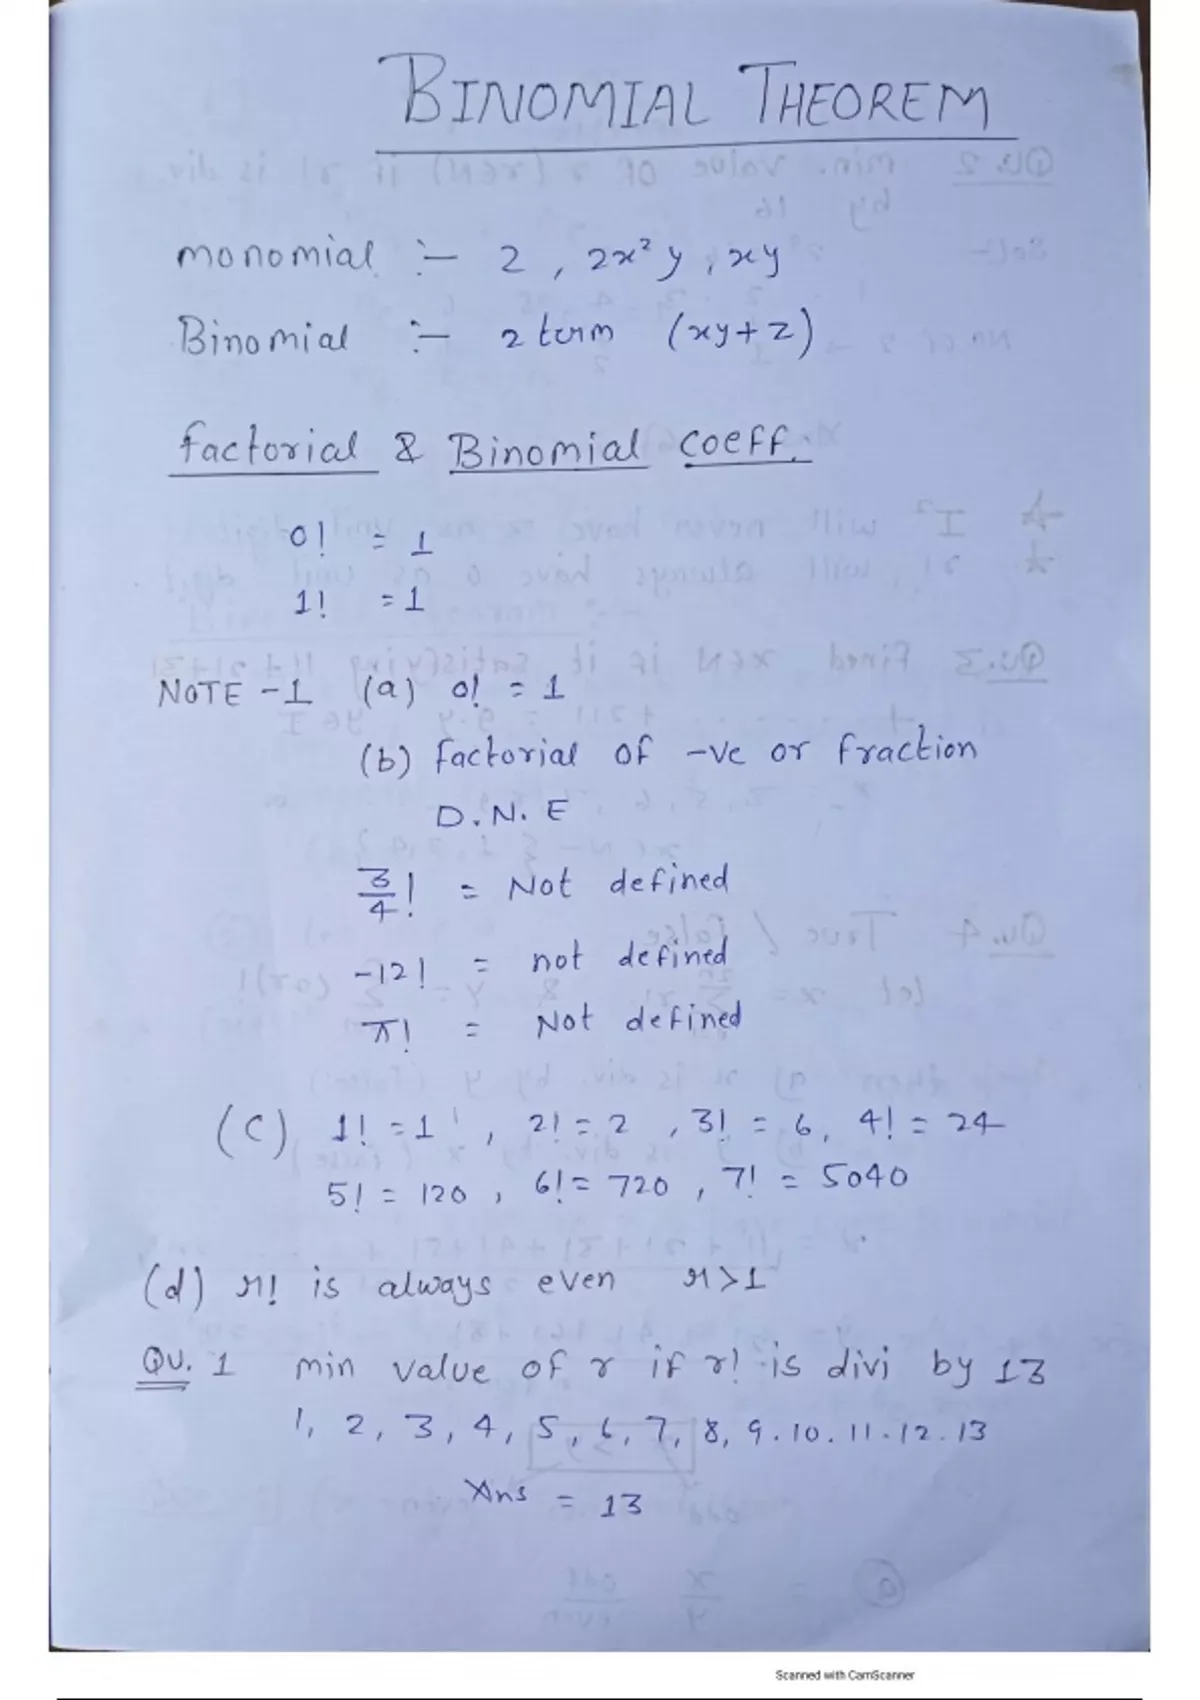 BINOMIAL THEOREM
monomial :- 2 , 2x² y , xy
Binomial :- 2 term (xy+z)
factorial & Binomial coeff.
0! = 1
1! = 1
NOTE -1 (a) 0! = 1
(b) factorial of -ve or fraction
D.N.E
3/4! = Not defined
-12! = not defined
π! = Not defined
(C) 1! = 1 , 2! = 2 , 3! = 6, 4! = 24
5! = 120 , 6! = 720 , 7! = 5040
(d) r! is always even r>1
QU. 1 min value of r if r! is divi by 13
1, 2, 3, 4, 5, 6, 7, 8, 9.10.11.12.13
Ans = 13
Scanned with CamScanner